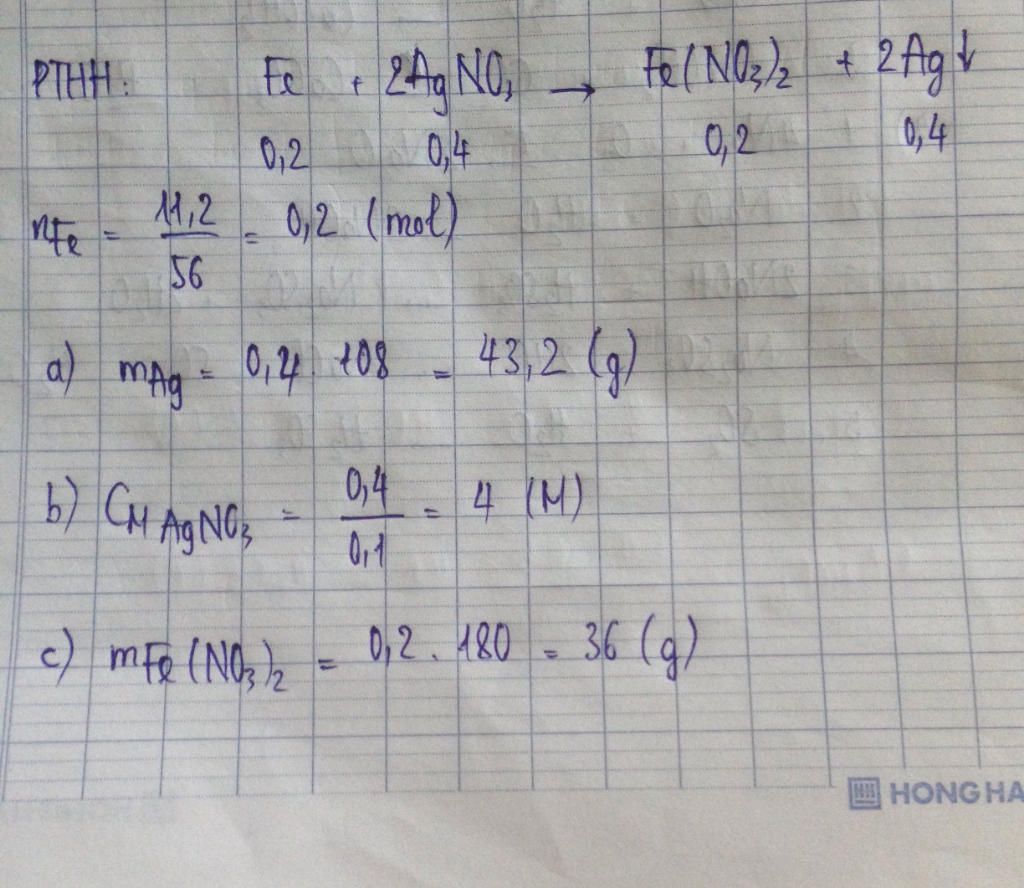 PTHH: Fe + 2AgNO₃ → Fe(NO₃)₂ + 2Ag↓
0,2 0,4 0,2 0,4
nFe = 11,2/56 = 0,2 (mol)
a) mAg = 0,4 . 108 = 43,2 (g)
b) CM AgNO₃ = 0,4/0,1 = 4 (M)
c) mFe(NO₃)₂ = 0,2 . 180 = 36 (g)
HONG HA